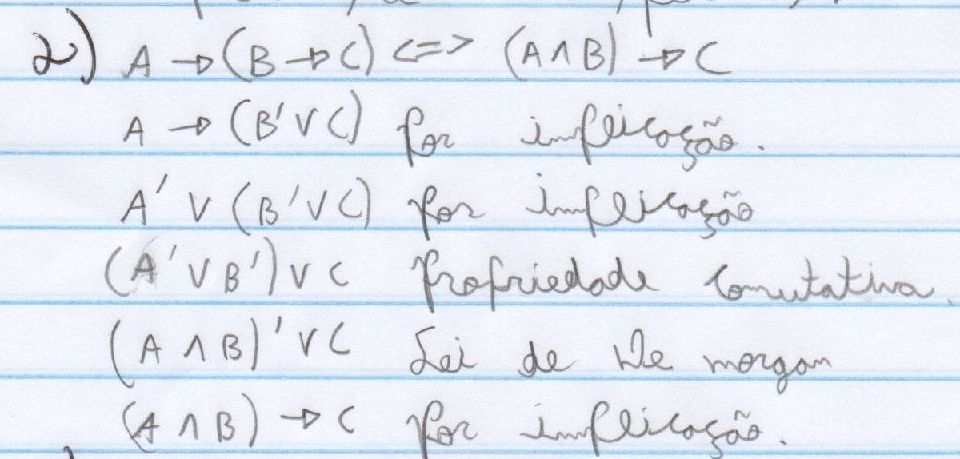 2) A → (B → C) <=> (A ∧ B) → C
A → (B' ∨ C) por implicação.
A' ∨ (B' ∨ C) por implicação
(A' ∨ B') ∨ C Propriedade comutativa.
(A ∧ B)' ∨ C Lei de De morgan
(A ∧ B) → C por implicação.